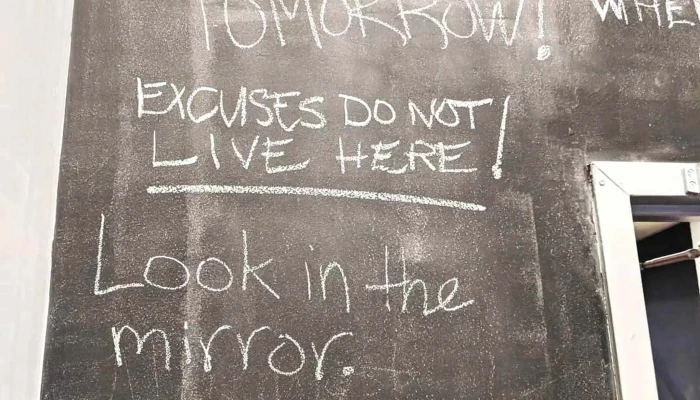 TOMORROW!
EXCUSES DO NOT
LIVE HERE!
Look in the
mirror.